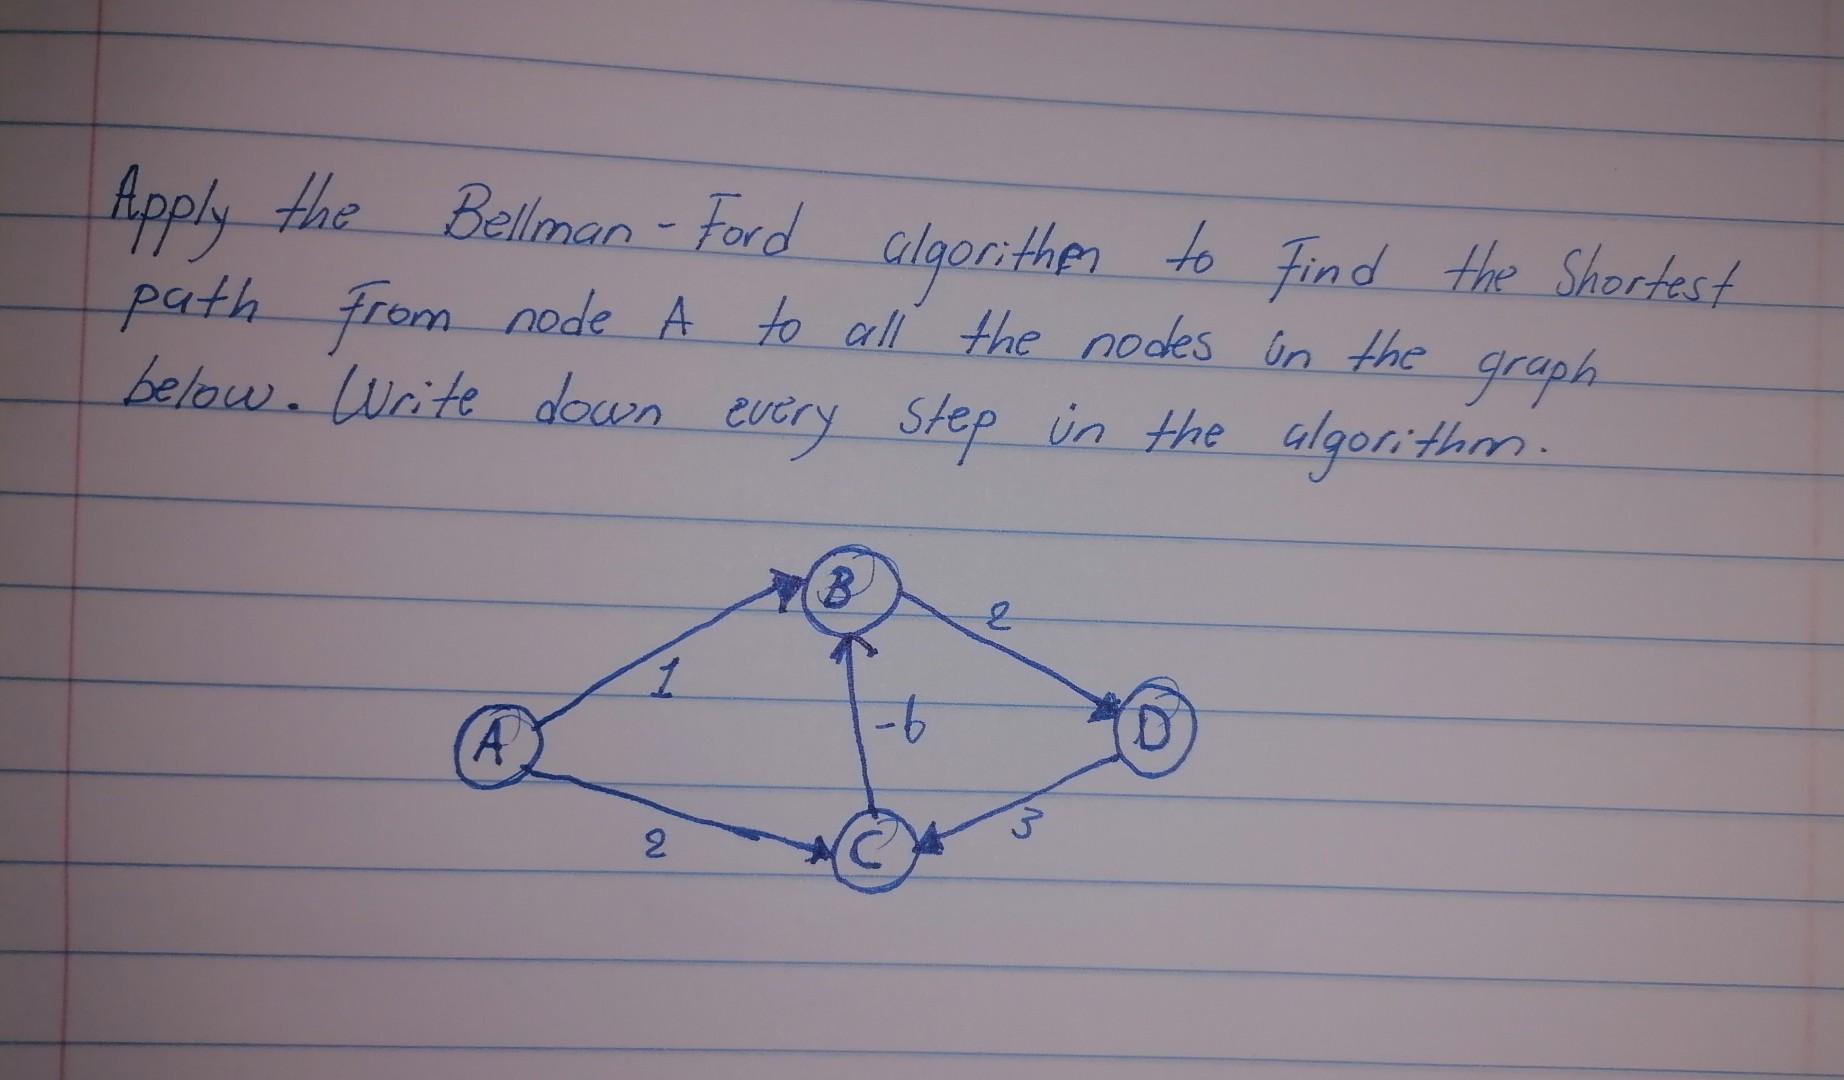 Apply the Bellman-Ford algorithm to find the shortest
path from node A to all the nodes in the graph
below. Write down every step in the algorithm.
B
2
1
A
-6
D
3
2
C